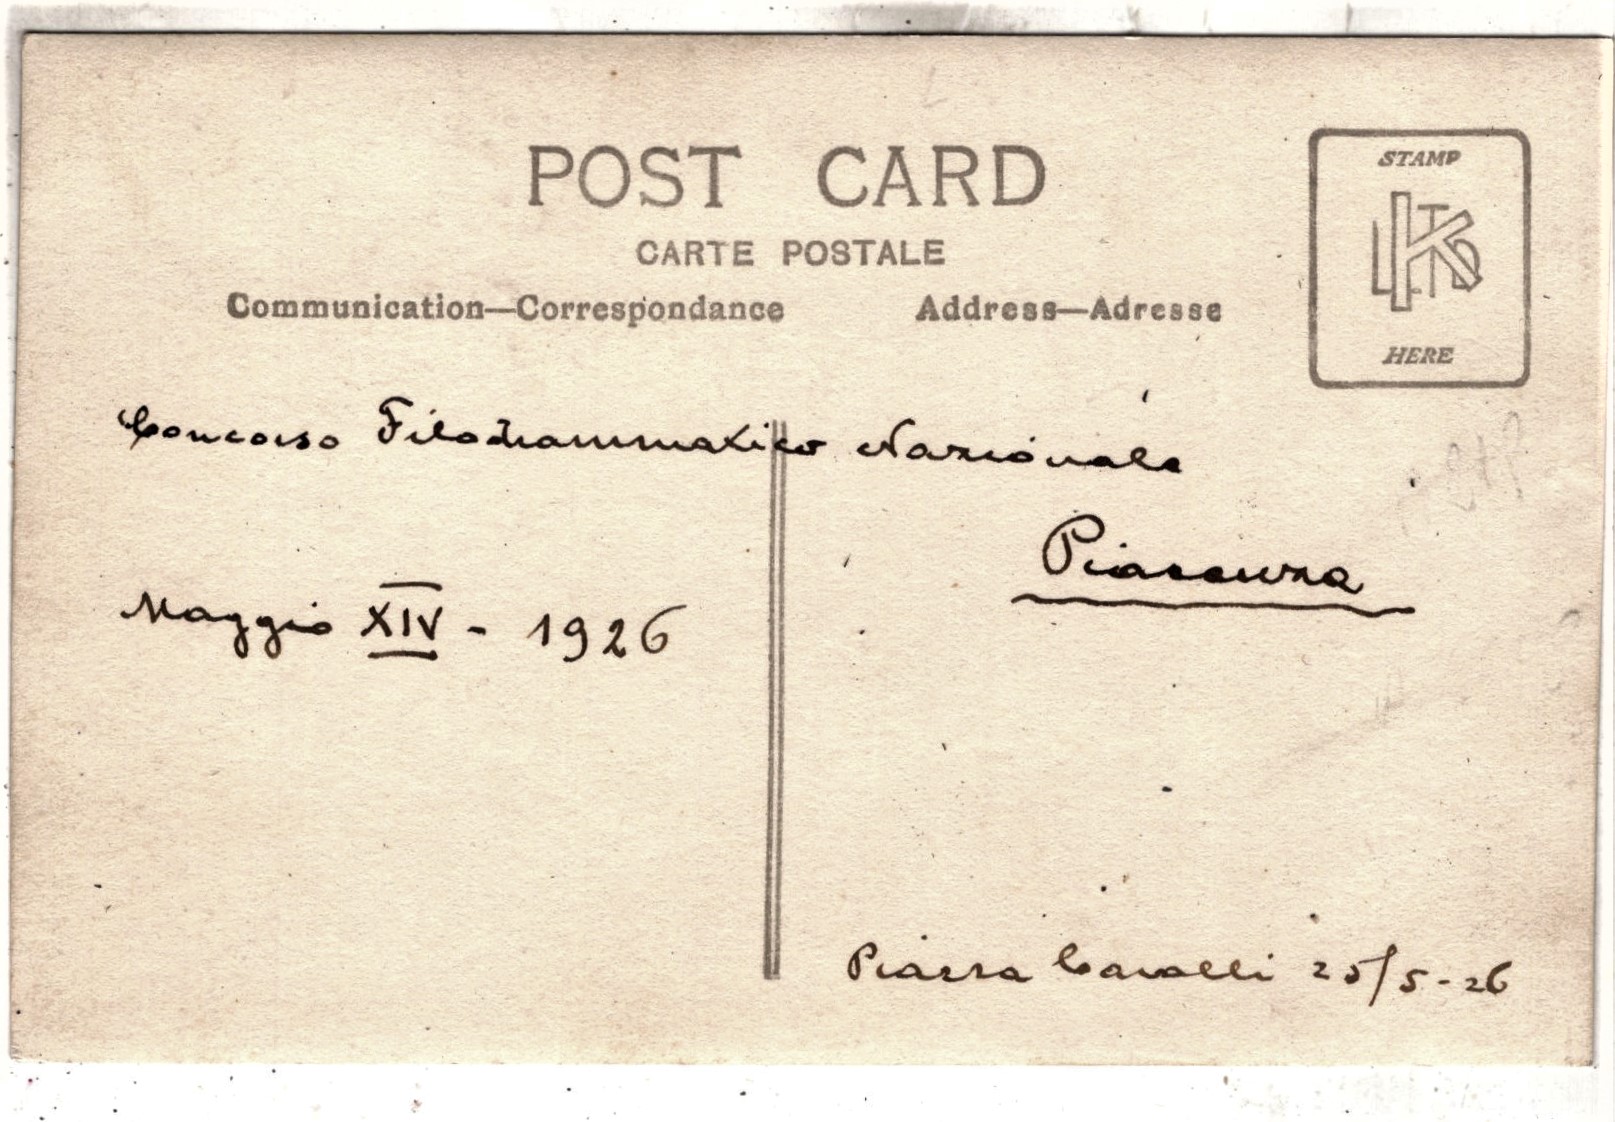 POST CARD
CARTE POSTALE
Communication—Correspondance
Address—Adresse
STAMP
HERE
Concorso Filodrammatico Nazionale
Piacenza
Maggio XIV - 1926
Piazza Cavalli 25/5-26